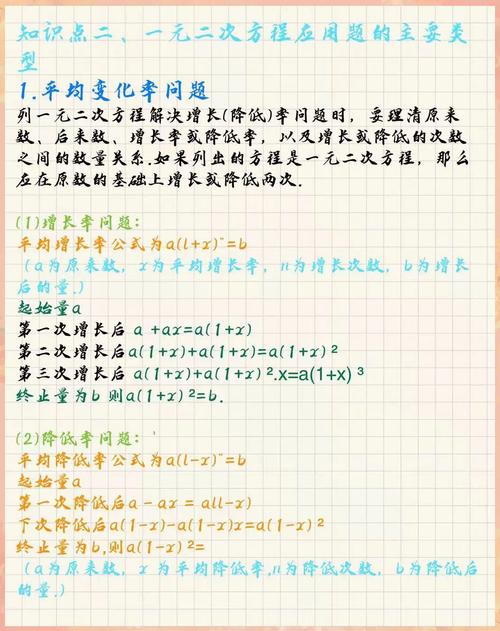 知识点二、一元二次方程应用题的主要类
型
1.平均变化率问题
列一元二次方程解决增长(降低)率问题时，要理清原来
数、后来数、增长率或降低率，以及增长或降低的次数
之间的数量关系.如果列出的方程是一元二次方程，那么
应在原数的基础上增长或降低两次.
(1)增长率问题：
平均增长率公式为a(1+x)ⁿ=b
(a为原来数，x为平均增长率，n为增长次数，b为增长
后的量.)
起始量a
第一次增长后 a +ax=a(1+x)
第二次增长后 a(1+x)+a(1+x)=a(1+x) ²
第三次增长后 a(1+x)+a(1+x) ².x=a(1+x) ³
终止量为b 则a(1+x) ²=b.
(2)降低率问题：
平均降低率公式为a(1-x)ⁿ=b
起始量a
第一次降低后a - ax = a(1-x)
下次降低后a(1-x)-a(1-x)x=a(1-x) ²
终止量为b,则a(1-x) ²=
(a为原来数，x 为平均降低率,n为降低次数，b为降低后
的量.)